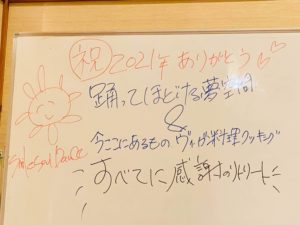 祝 2021年ありがとう
踊ってほどける夢空間
&
今ここにあるもの ヴィーガン料理クッキング
すべてに感謝のリトリート
Soul Dance